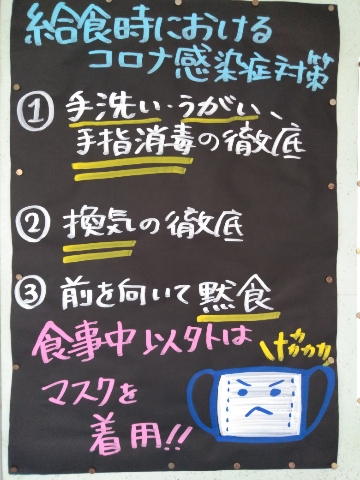 給食時における
コロナ感染症対策
① 手洗い・うがい、
手指消毒の徹底
② 換気の徹底
③ 前を向いて黙食
食事中以外は
マスクを
着用!!